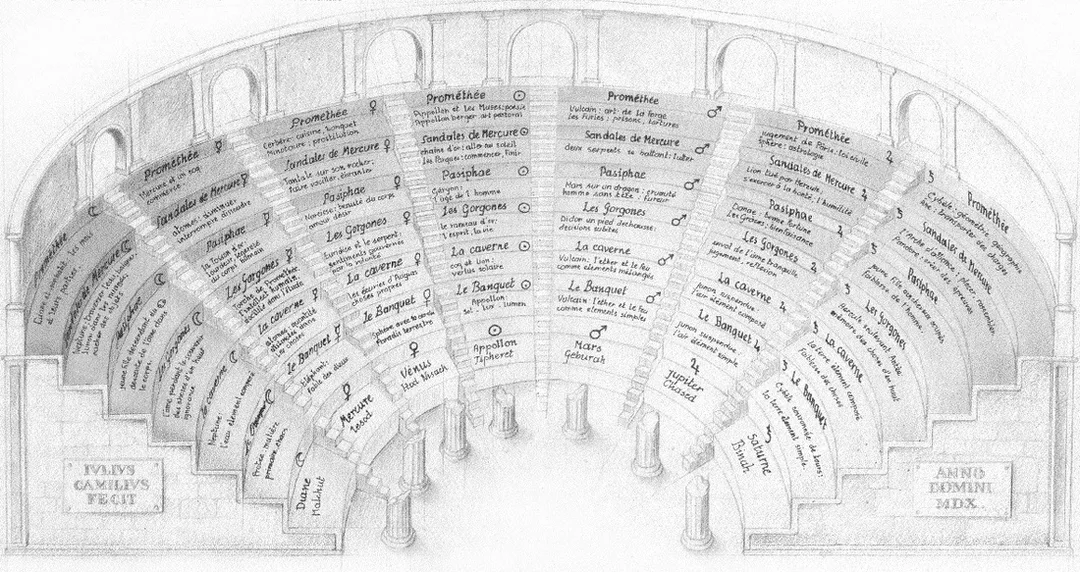 Prométhée ☿
Mercure et un coq
commerce
Sandales de Mercure ☿
atomes: diminuer,
interrompre, dissoudre
Pasiphae ☿
la Toison d'or
lourdeur, légèreté
du corps humain
Les Gorgones ☿
La caverne ☿
Le Banquet ☿
éléphant:
fable des dieux
☿
Mercure
Iesod
Prométhée ♀
Cerbère: cuisine, banquet
Minotaure: prostitution
Sandales de Mercure ♀
Tantale sur son rocher;
faire vaciller, ébranler
Pasiphae ♀
Narcisse: beauté du corps
amour désir
Les Gorgones ♀
Eurydice et le serpent:
sentiments gouvernés
par la volonté
La caverne ♀
Les écuries d'Augias
choses propres
Le Banquet ♀
Sphère avec le cercle
Paradis terrestre
♀
Vénus
Hod Nisach
Prométhée ☉
Appollon et les Muses: poésie
Appollon berger art pastoral
Sandales de Mercure ☉
chaîne d'or: aller au soleil
Les Parques: commencer, finir
Pasiphae ☉
Géryon:
l'âge de l'homme
Les Gorgones ☉
le rameau d'or:
l'esprit, la vie
La caverne ☉
coq et lion:
vertus solaire
Le Banquet ☉
Appollon
Sol : lux : lumen
☉
Appollon
Tipheret
Prométhée ♂
Vulcain: art de la forge
les Furies: prisons, tortures
Sandales de Mercure ♂
deux serpents se battant: lutter
Pasiphae ♂
Mars sur un dragon: cruauté
homme sans tête: fureur
Les Gorgones ♂
Didon un pied déchaussé:
décisions subites
La caverne ♂
Vulcain: l'éther et le feu
comme elements mélangés
Le Banquet ♂
Vulcain: l'éther et le feu
comme elements simples
♂
Mars
Geburah
Prométhée ♃
Jugement de Pâris: loi civile
sphère: astrologie
Sandales de Mercure ♃
Lion tué par Hercule:
s'exercer à la bonté, l'humilité
Pasiphae ♃
Danae: bonne fortune
Les Grâces: bienfaisance
Les Gorgones ♃
envol de l'âme tranquille
jugement, réflexion
La caverne ♃
Junon suspendue
l'air élément composé
Le Banquet ♃
junon suspendue
l'air élément simple
♃
Jupiter
Chased
Prométhée
Cybèle: géométrie, géographie
Sandales de Mercure
Pasiphae
Les Gorgones
La caverne
la terre élément composé
Le Banquet
Cybèle couronnée de tours:
la terre élément simple
Saturne
Binah
Prométhée
Sandales de Mercure ☾
Pasiphae ☾
Les Gorgones ☾
La caverne ☾
Neptune:
l'eau élément composé
Le Banquet
Protée: matière
première, chaos
☾
Diane
Malchut
IVLIVS
CAMILIVS
FECIT
ANNO
DOMINI
MDX